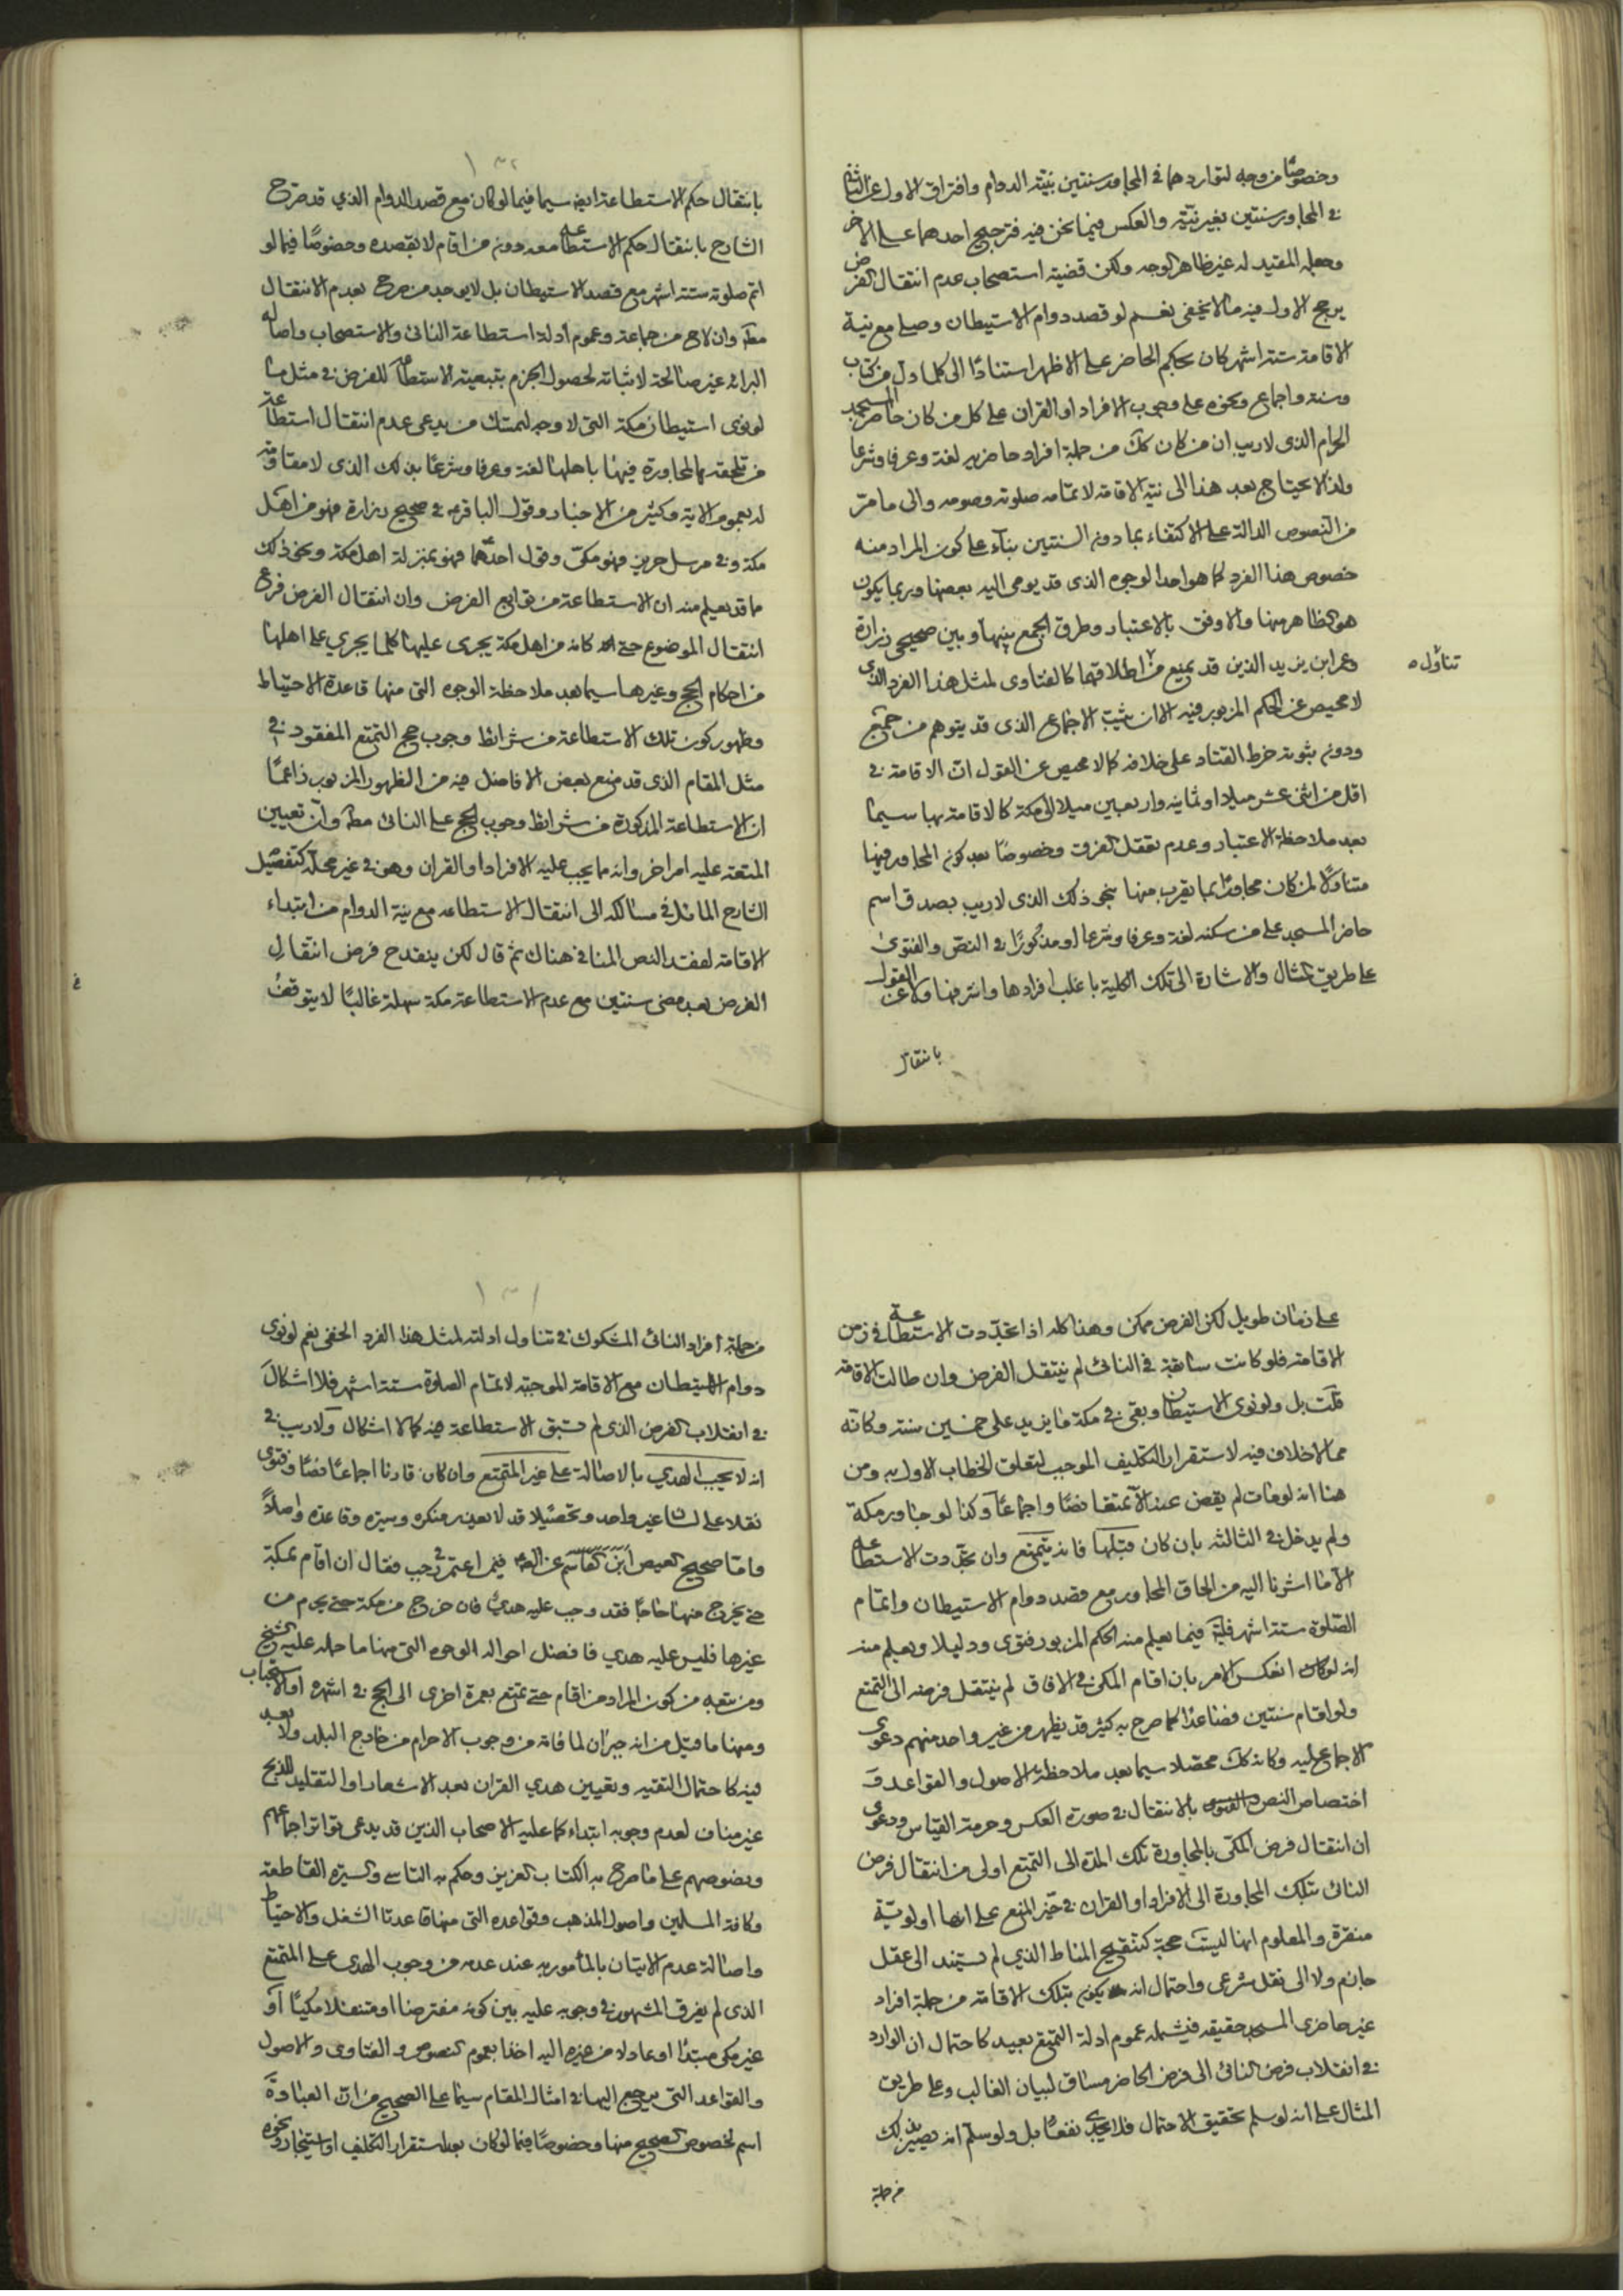 وخصوصًا من وجه لتواردهما في المجاور سنتين بنيّة الدوام وافتراق الاول عن الثاني
في المجاور سنتين بغير نيّته والعكس فيما نحن فيه فترجيح احدهما على الاخر
وجعله المقيد له غير ظاهر الوجه ولكن قضية استصحاب عدم انتقال الفرض
يرجح الاول فيه ما لا يخفى نعم لو قصد دوام الاستيطان وصلى مع نية
الاقامة ستة اشهر كان بحكم الحاضر على الاظهر استنادًا الى كلما دل من كتاب
وسنة واجماع ونحوه على وجوب الافراد او القران على كل من كان حاضر المسجد
الحرام الذى لاريب ان من كان كك من جملة افراد حاضريه لغة وعرفا وشرعا
ولذا لا يحتاج بعد هذا الى نية الاقامة لاتمام صلوته وصومه والى ما مرّ
من النصوص الدالة على الاكتفاء بما دون السنتين بناء على كون المراد منه
خصوص هذا الفرد كما هو احد الوجوه الذى قد يومى اليه بعضها وربما يكون
هو الظاهر منها والاوفق بالاعتبار وطرق الجمع بينها وبين صحيحى زرارة
وعمر ابن يزيد الذين قد يمنع من اطلاقهما كالفتاوى لمثل هذا الفرد الذى
تناول ه
لا محيص عن الحكم المزبور فيه الا ان يثبت الاجماع الذى قد يتوهم من جميع
ودون ثبوته خرط القتاد على خلافه كما لا محيص عن القول ان الاقامة في
اقل من اثنى عشر ميلا او ثمانية واربعين ميلا الى مكة كالاقامة بها سيما
بعد ملاحظة الاعتبار وعدم تعقل الفرق وخصوصًا بعد كون المجاور فيها
متناولًا لمن كان مجاورًا بما يقرب منها بنحو ذلك الذى لاريب بصدق اسم
حاضر المسجد على من سكنه لغة وعرفا وشرعا او مذكورًا في النص والفتوى
على طريق المثال والاشارة الى تلك الكلية باغلب افرادها واشرفها ولا عن القول
بانتقال
١٣٢
بانتقال حكم الاستطاعة ايض سيما فيما لو كان مع قصد الدوام الذي قد صرح
الشارح بانتقال حكم الاستطاعة معه دون من اقام لا بقصده وخصوصًا فيما لو
اتم صلوته ستة اشهر مع قصد الاستيطان بل لا يوجد من صرح بعدم الانتقال
مطلقا وان لاح من جماعة وعموم ادلة استطاعة النائى والاستصحاب واصالة
البرائة غير صالحة لاثباته لحصول الجزم بتبعية الاستطاعة للفرض في مثل ما
لو نوى استيطان مكة التى لا وجه لتمسك من يدعى عدم انتقال استطاعة
من تلحقه بالمجاورة فيها باهلها لغة وعرفا وشرعًا بذلك الذى لا مقاومة
له بعموم الاية وكثير من الاخبار وقول الباقر ع في صحيح زرارة فهو من اهل
مكة وفي مرسل حريز فهو مكى وقول احدهما فهو بمنزلة اهل مكة ونحو ذلك
مما قد يعلم منه ان الاستطاعة من توابع الفرض وان انتقال الفرض فرع
انتقال الموضوع حتى كانه من اهل مكة يجرى عليها كلما يجري على اهلها
من احكام الحج وغيرها سيما بعد ملاحظة الوجوه التى منها قاعدة الاحتياط
وظهور كون تلك الاستطاعة من شرائط وجوب حج التمتع المفقود في
مثل المقام الذى قد منع بعض الافاضل فيه من الظهور المزبور زاعمًا
ان الاستطاعة المذكورة من شرائط وجوب الحج على النائى مطلقا وان تعيين
المتعة عليه امر اخر وانه مما يجب عليه الافراد او القران وهو في غير محله كتفصيل
الشارح المائل في مسالكه الى انتقال الاستطاعه مع نية الدوام من ابتداء
الاقامة لفقد النص المنافى هناك ثم قال لكن ينقدح فرض انتقال
الفرض بعد مضى سنتين مع عدم الاستطاعة مكة سهلة غالبًا لا يتوقف
على زمان طويل لكن الفرض ممكن وهذا كله اذا تجددت الاستطاعة في زمن
الاقامة فلو كانت سابقة في النائى لم ينتقل الفرض وان طالت الاقامة
قلت بل ولو نوى الاستيطان وبقى في مكة ما يزيد على خمسين سنة وكانه
مما لا خلاف فيه لاستقرار التكليف الموجب لتعلق الخطاب الاول به ومن
هنا انه لو مات لم يقض عنه الا تمتعا نصًا واجماعًا وكذا لو جاور مكة
ولم يدخل في الثالثة بان كان قبلها فانه يتمتع وان تجددت الاستطاعة
الا ما اشرنا اليه من الحاق المجاور مع قصد دوام الاستيطان واتمام
الصلوة ستة اشهر فيما يعلم منه الحكم المزبور فتوى ودليلا ويعلم منه
انه لو انعكس الامر بان اقام المكى في الافاق لم ينتقل فرضه الى التمتع
ولو اقام سنتين فصاعدًا كما صرح به كثير قد يظهر من غير واحد منهم دعوى
الاجماع عليه وكانه كك محصلا سيما بعد ملاحظة الاصول والقواعد و
اختصاص النص والفتوى بالانتقال في صورة العكس وحرمة القياس ودعوى
ان انتقال فرض المكى بالمجاورة تلك المدة الى التمتع اولى من انتقال فرض
النائى بتلك المجاورة الى الافراد او القران في حيّز المنع على انها اولوية
منقرة والمعلوم انها ليست حجة كتنقيح المناط الذي لم تستند الى عقل
جازم ولا الى نقل شرعى واحتمال انه يكون بتلك الاقامة من جملة افراد
غير حاضرى المسجد حقيقة فيشمله عموم ادلة التمتع بعيد كاحتمال ان الوارد
في انقلاب فرض النائى الى فرض الحاضر مساق لبيان الغالب وعلى طريق
المثال على انه لو سلم تحقيق الاحتمال فلا يجدى نفعًا بل ولو سلم انه يصير بذلك
من جملة
١٣١
من جملة افراد النائى المشكوك في تناول ادلته لمثل هذا الفرد الخفى نعم لو نوى
دوام الاستيطان مع الاقامة الموجبة لاتمام الصلوة ستة اشهر فلا اشكال
في انقلاب الفرض الذى لم تسبق الاستطاعة فيه كما لا اشكال ولاريب في
انه لا يجب الهدي بالاصالة على غير المتمتع وان كان قارنا اجماعًا نصًا وفتوى
نقلا على لسان غير واحد وتحصيلا قد لا يعتريه منكره وسيرة وقاعدة واصلًا
واما صحيح العيص ابن القاسم عن الصادق فيمن اعتمر في رجب فقال ان اقام بمكة
حتى يخرج منها حاجًا فقد وجب عليه هدىٌ فان خرج من مكة حتى يحرم من
غيرها فليس عليه هدي فافضل احواله الوجوه التى منها ما حمله عليه الشيخ
ومن تبعه من كون المراد من اقام حتى تمتع بعمرة اخرى الى الحج في اشهره او الاستحباب
ومنها ما قيل من انه جبران لما فاته من وجوب الاحرام من خارج البلد ولا بعد
فيه كاحتمال التقيه وتعيين هدي القران بعد الاشعار او التقليد للذبح
غير مناف لعدم وجوبه ابتداء كما عليه الاصحاب الذين قد يدعى تواتر اجماعهم
ونصوصهم على ما صرح به الكتاب العزيز وحكم به التاسى والسيرة القاطعة
وكافة المسلمين واصول المذهب وقواعده التى منها قاعدتا الشغل والاحتياط
واصالة عدم الاتيان بالمأمور به عند عدمه من وجوب الهدى على المتمتع
الذى لم يفرق المشهور في وجوبه عليه بين كونه مفترضا او متنفلا مكيًا او
غير مكى مبتدًا او عادلا من غيره اليه اخذا بعموم النصوص والفتاوى والاصول
والقواعد التى يرجع اليها في امثال المقام سيما على الصحيح من ان العبادة
اسم لخصوص الصحيح منها وخصوصًا فيما لو كان بعد استقرار التكليف او استيجار ونحوه